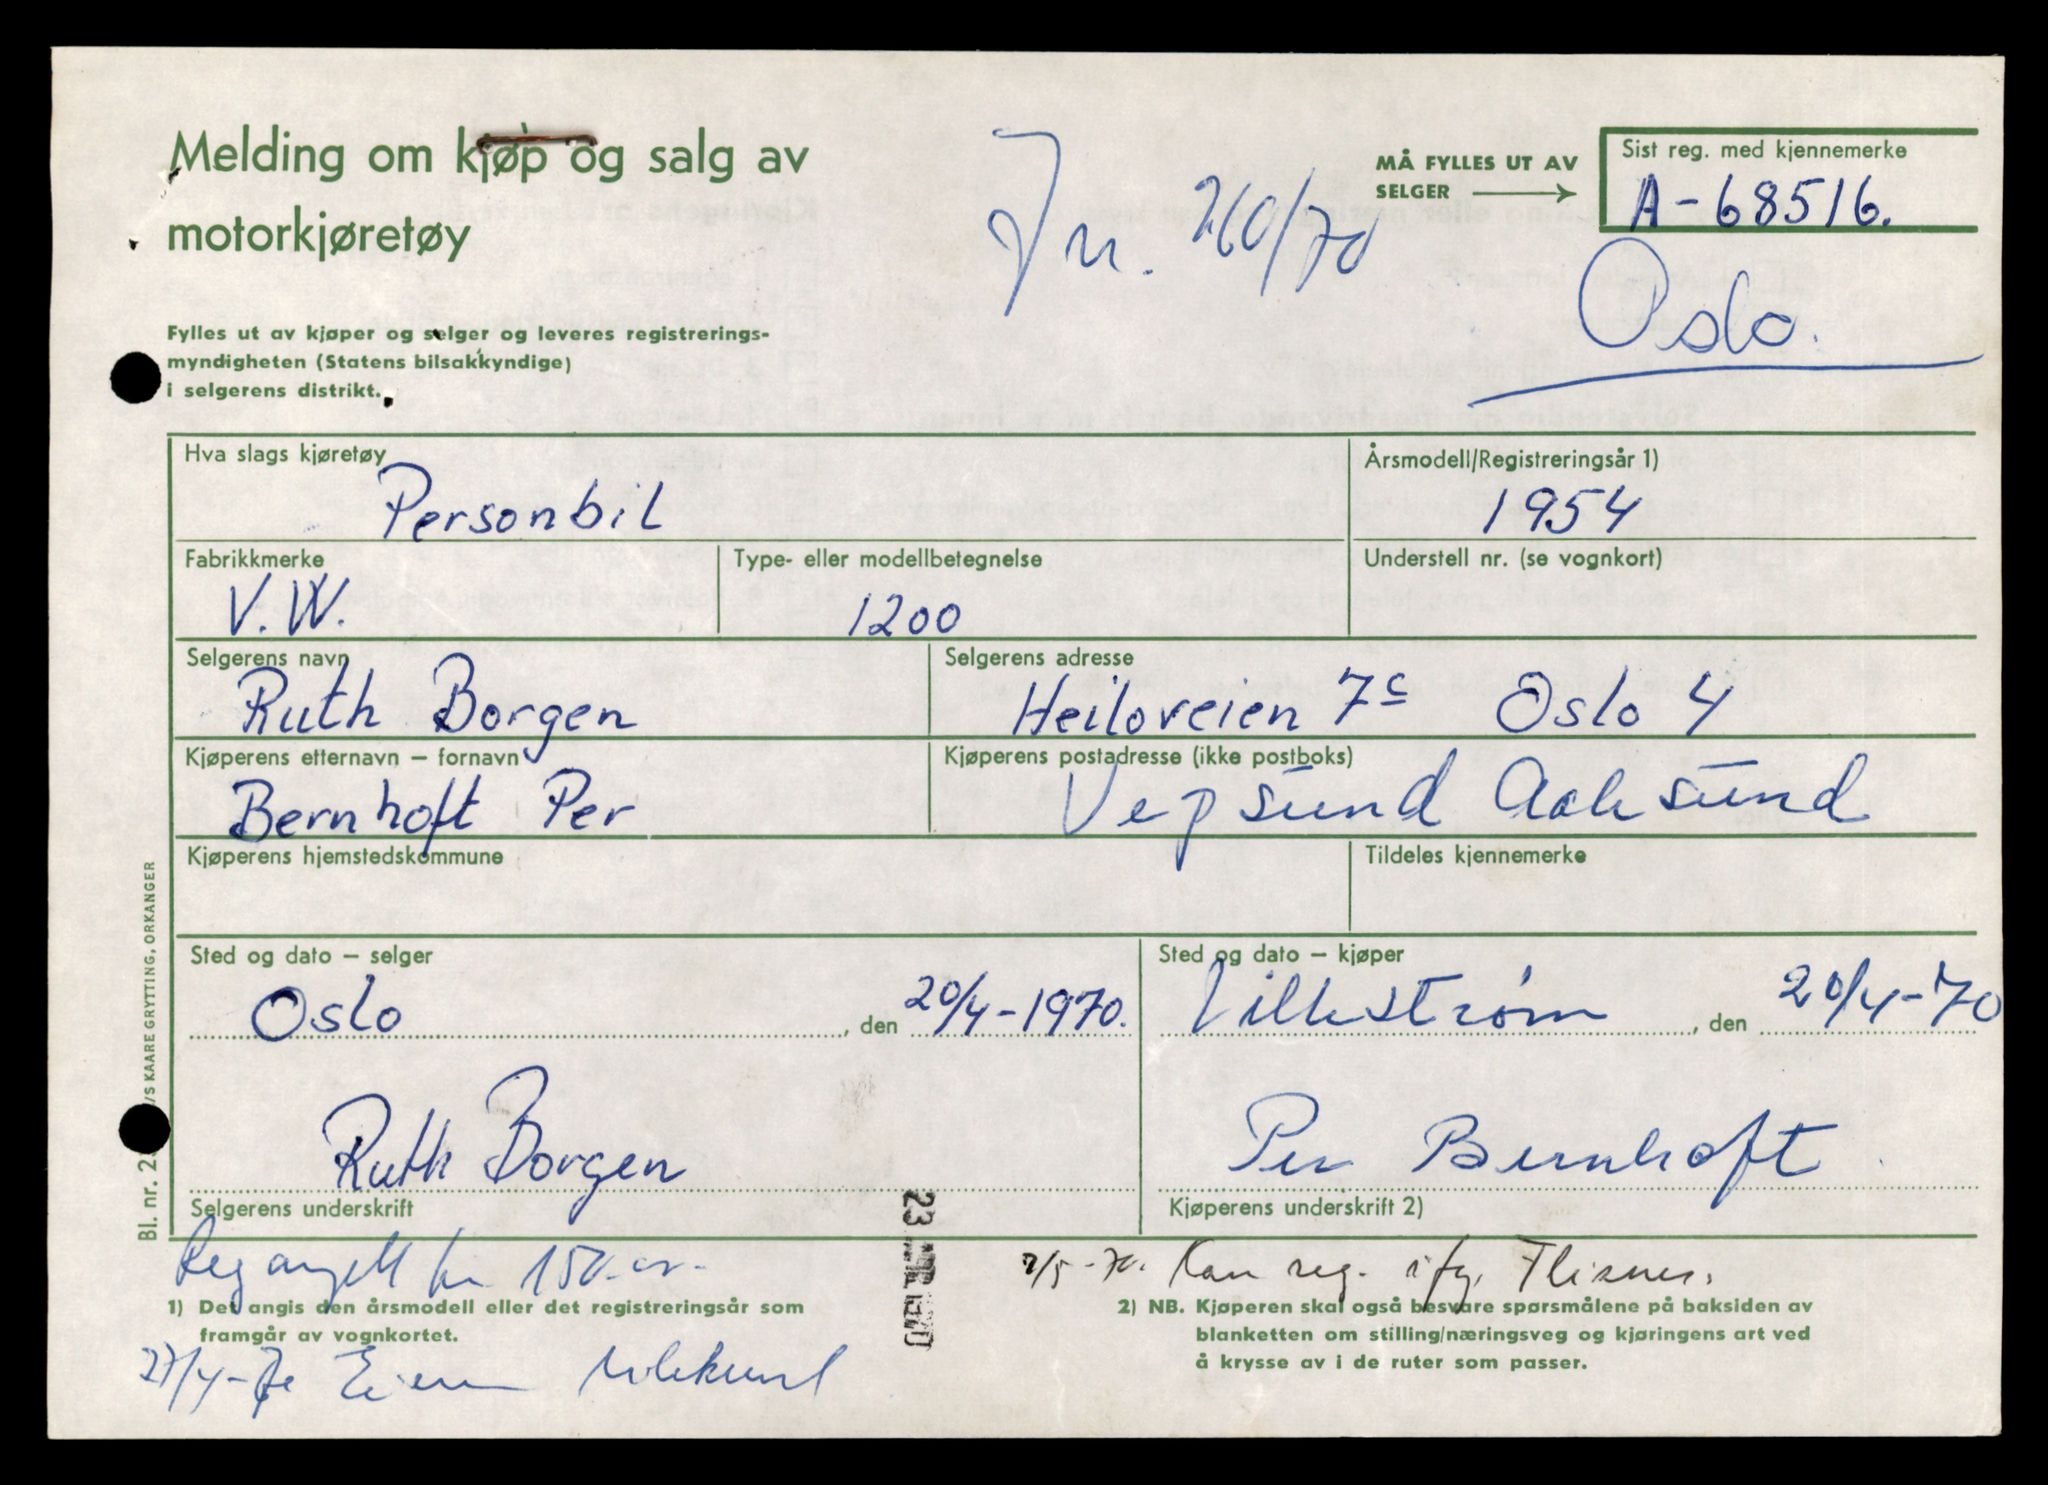 Melding om kjøp og salg av
motorkjøretøy
Fylles ut av kjøper og selger og leveres registrerings-
myndigheten (Statens bilsakkyndige)
i selgerens distrikt.
Jnr. 260/70
MÅ FYLLES UT AV
SELGER
Sist reg. med kjennemerke
A-68516.
Oslo.
Hva slags kjøretøy
Personbil
Årsmodell/Registreringsår 1)
1954
Fabrikkmerke
V.W.
Type- eller modellbetegnelse
1200
Understell nr. (se vognkort)
Selgerens navn
Ruth Borgen
Selgerens adresse
Heiloveien 7c Oslo 4
Kjøperens etternavn – fornavn
Bernhoft Per
Kjøperens postadresse (ikke postboks)
Vepsund
Kjøperens hjemstedskommune
Tildeles kjennemerke
Sted og dato – selger
Oslo, den 20/4-1970.
Sted og dato – kjøper
Lillestrøm, den 20/4-70
Ruth Borgen
Selgerens underskrift
Per Bernhoft.
Kjøperens underskrift 2)
kr. 150.-
Kan reg.
1) Det angis den årsmodell eller det registreringsår som
framgår av vognkortet.
27/4-70 Eieren
2) NB. Kjøperen skal også besvare spørsmålene på baksiden av
blanketten om stilling/næringsveg og kjøringens art ved
å krysse av i de ruter som passer.
Bl. nr. 2 /S KAARE GRYTTING, ORKANGER
23 1970